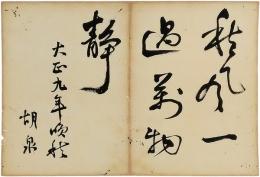 秋風一
過萬物
靜
大正九年晩秋
胡泉